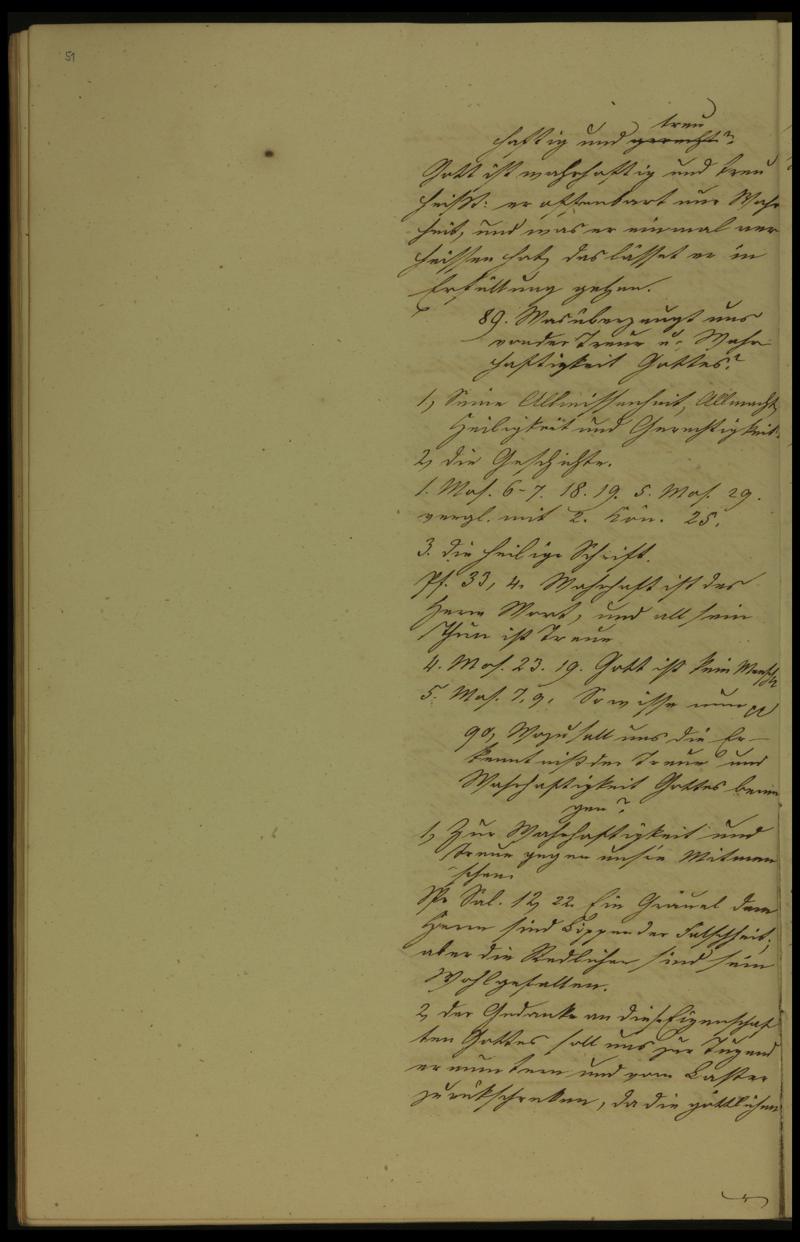 51
treu
haftig und gerecht?
Gott ist wahrhaftig und treu
heißt: er offenbart nur Wahr
heit, und was er einmal ver
heissen hat, das lässet er in
Erfüllung gehen.
89. Was überzeugt uns
von der Treue u. Wahr
haftigkeit Gottes?
1, Seine Allwissenheit, Allmacht,
Heiligkeit und Gerechtigkeit.
2, die Geschichte.
1. Mos. 6-7. 18. 19. 5. Mos. 29.
vergl. mit 2. Kön. 25.
3. die heilige Schrift.
Ps. 33, 4. Wahrhaft ist des
Herrn Wort, und all sein
Thun ist Treue
4. Mos. 23. 19. Gott ist kein Mensch
5. Mos. 7. 9. So wisse nun
90, Wozu soll uns die Er-
kenntniß der Treue und
Wahrhaftigkeit Gottes bewe
gen?
1, Zur Wahrhaftigkeit und
Treue gegen unsre Mitmen
schen.
Spr. Sal. 12, 22. Ein Gräuel dem
Herrn sind Lippen der Falschheit;
aber die Redlichen sind sein
Wohlgefallen.
2, der Gedanke an diese Eigenschaf
ten Gottes soll uns zur Tugend
ermuntern und vom Laster
zurükschreken, da die göttlichen